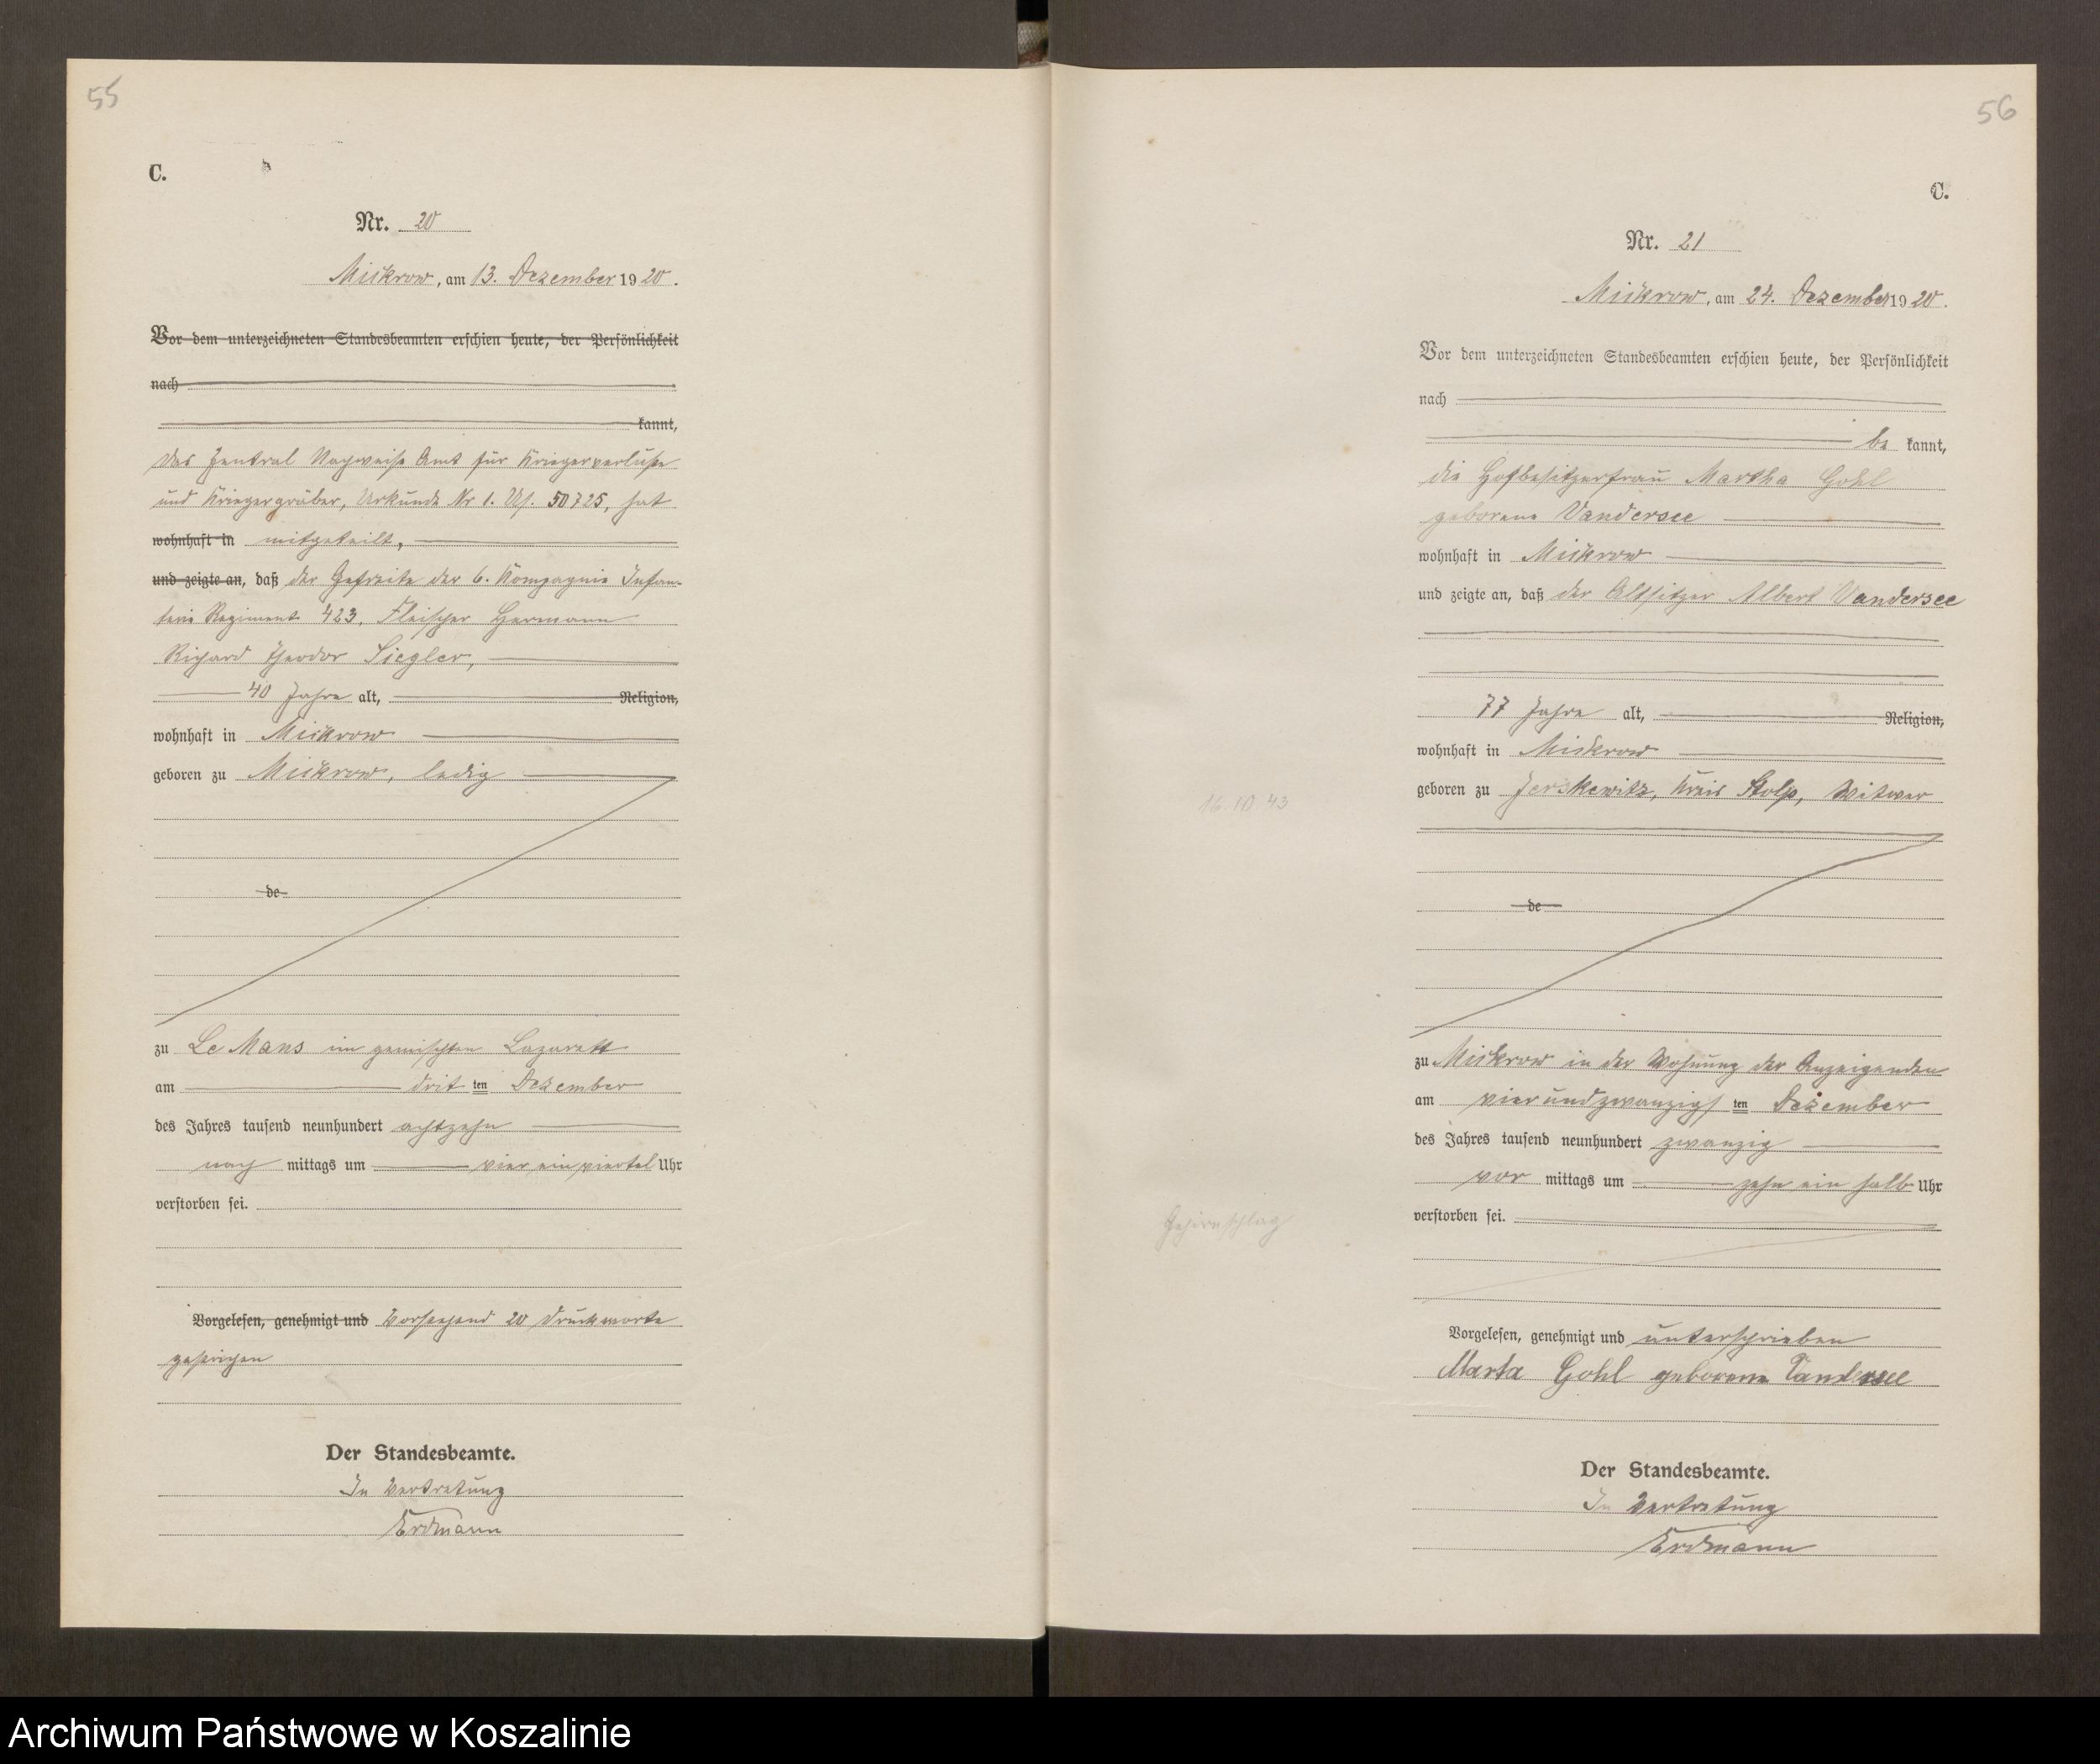 55
C.
Nr. 20
Mickrow, am 13. Dezember 1920.
Vor dem unterzeichneten Standesbeamten erschien heute, der Persönlichkeit
nach
kannt,
das Zentral Nachweise Amt für Kriegerverluste
und Kriegergräber, Urkunde Nr 1. 50725, hat
wohnhaft in mitgeteilt,
und zeigte an, daß der Gefreite der 6. Kompagnie Infan-
terie Regiment 423, Fleischer Hermann
Richard Theodor Siegler,
40 Jahre alt, Religion,
wohnhaft in Mickrow
geboren zu Mickrow, ledig
de
zu Le Mans im gemischten Lazarett
am dritten Dezember
des Jahres tausend neunhundert achtzehn
nachmittags um vier ein viertel Uhr
verstorben sei.
Vorgelesen, genehmigt und Vorstehend 20 Druckworte
gestrichen
Der Standesbeamte.
In Vertretung
Erdmann
56
C.
Nr. 21
Mickrow, am 24. Dezember 1920.
Vor dem unterzeichneten Standesbeamten erschien heute, der Persönlichkeit
nach
be kannt,
die Hofbesitzerfrau Martha Gohl
geborene Vandersee
wohnhaft in Mickrow
und zeigte an, daß der Altsitzer Albert Vandersee
77 Jahre alt, Religion,
wohnhaft in Mickrow
geboren zu Jerskewitz, Kreis Stolp, Witwer
16. 10 43
de
zu Mickrow in der Wohnung der Anzeigenden
am vierundzwanzigsten Dezember
des Jahres tausend neunhundert zwanzig
vormittags um zehn ein halb Uhr
verstorben sei.
Gehirnschlag
Vorgelesen, genehmigt und unterschrieben
Marta Gohl geborene Vandersee
Der Standesbeamte.
In Vertretung
Erdmann
Archiwum Państwowe w Koszalinie